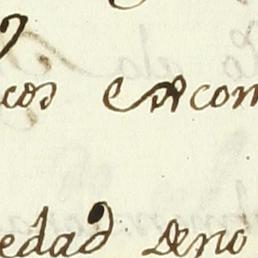 cos Encom
edad deno